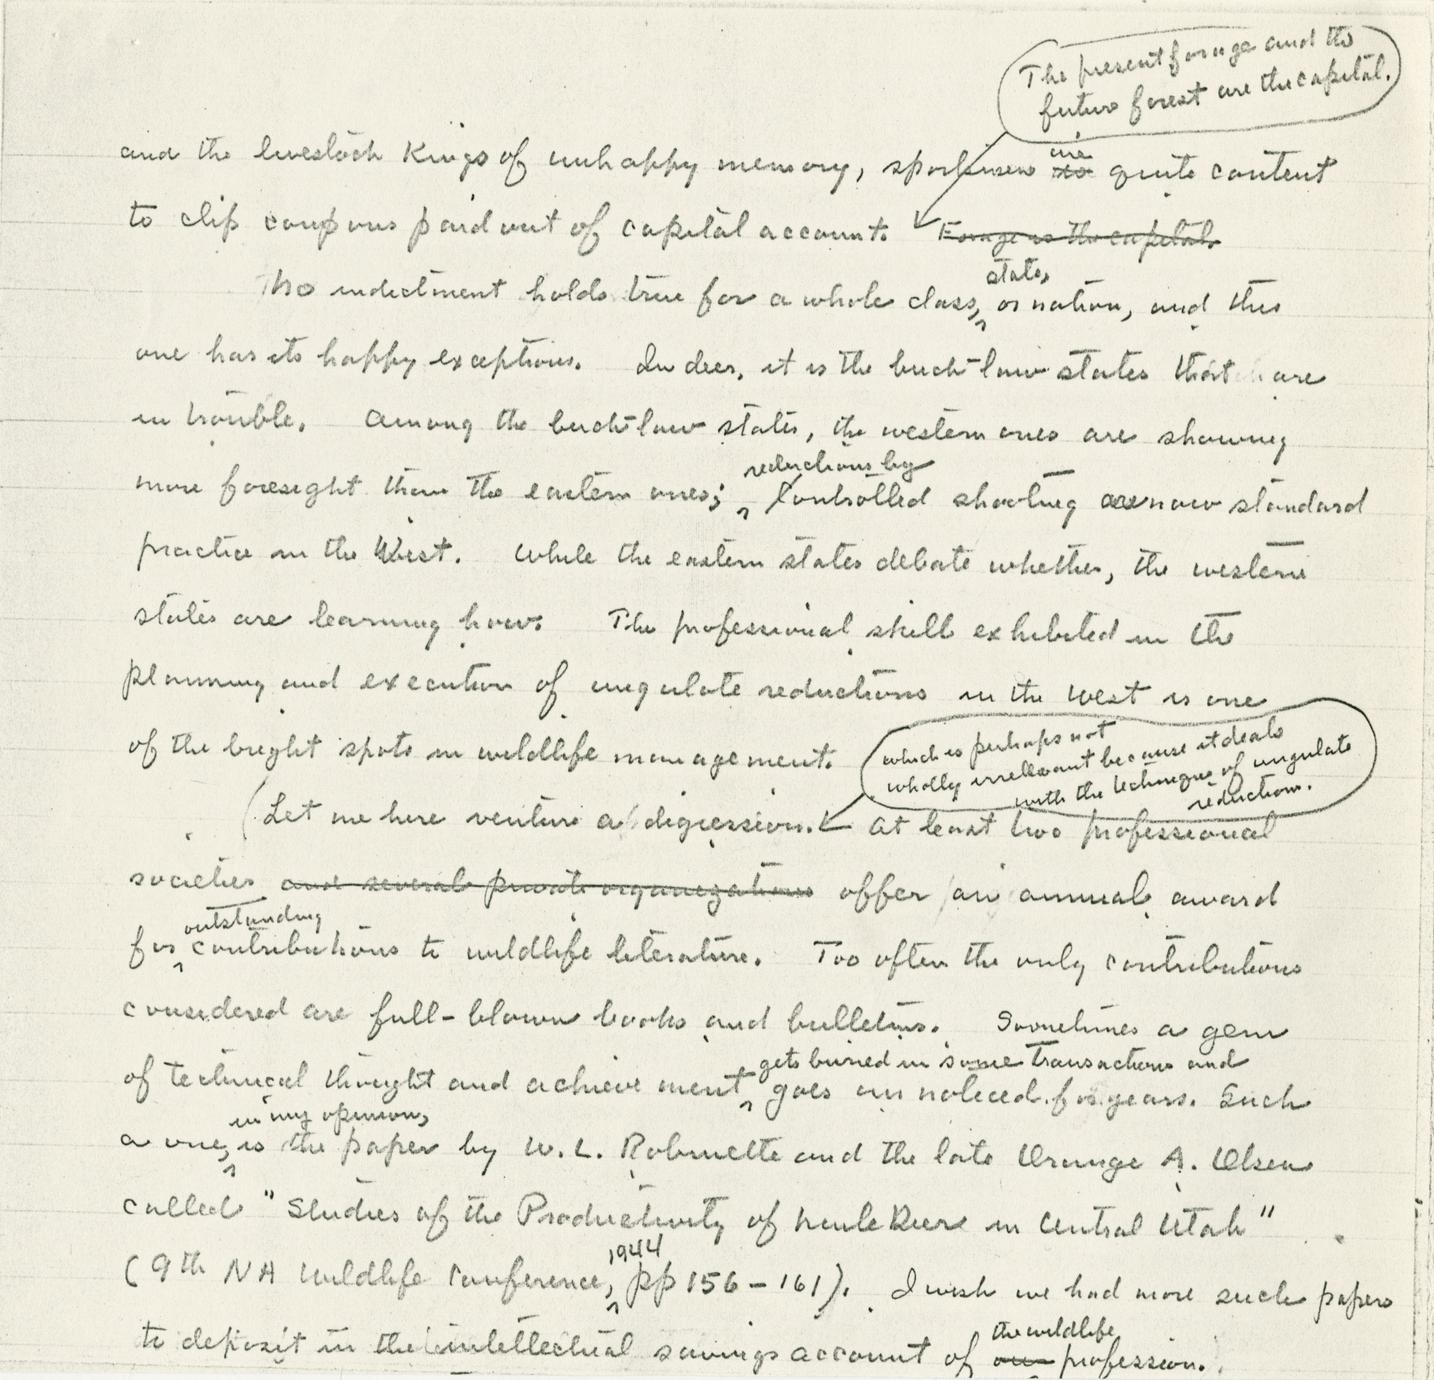 The present forage and the
future forest are the capital.
and the livestock Kings of unhappy memory, sportsmen are quite content
to clip coupons paid out of capital account. Forage is the capital.
state,
No indictment holds true for a whole class, or nation, and this
one has its happy exceptions. In deer, it is the buck-law states that are
in trouble. Among the buck-law states, the western ones are showing
reductions by
more foresight than the eastern ones; controlled shooting are now standard
practice in the West. While the eastern states debate whether, the western
states are learning how. The professional skill exhibited in the
planning and execution of ungulate reductions in the West is one
of the bright spots in wildlife management.
which is perhaps not
wholly irrelevant because it deals
with the technique of ungulate
reduction.
(Let me here venture a digression. At least two professional
societies and several private organizations offer an annual award
outstanding
for contributions to wildlife literature. Too often the only contributions
considered are full-blown books and bulletins. Sometimes a gem
gets buried in some transactions and
of technical thought and achievement goes unnoticed for years. Such
in my opinion,
a one, is the paper by W. L. Robinette and the late Orange A. Olsen
called "Studies of the Productivity of Mule Deer in Central Utah"
1944
(9th NA Wildlife Conference, pp 156-161). I wish we had more such papers
the wildlife
to deposit in the intellectual savings account of our profession.